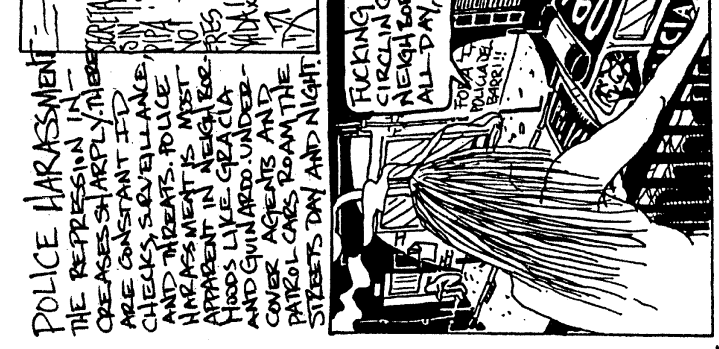 POLICE HARASSMENT:
THE REPRESSION IN-
CREASES SHARPLY. THERE
ARE CONSTANT ID
CHECKS, SURVEILLANCE,
AND THREATS. POLICE
HARASSMENT IS MOST
APPARENT IN NEIGHBOR-
HOODS LIKE GRACIA
AND GUINARDO. UNDER-
COVER AGENTS AND
PATROL CARS ROAM THE
STREETS DAY AND NIGHT.
FUCKING
CIRCLING
NEIGHBOR
ALL DAY,
POLICIA DEL
BARRI!!!
ICIA